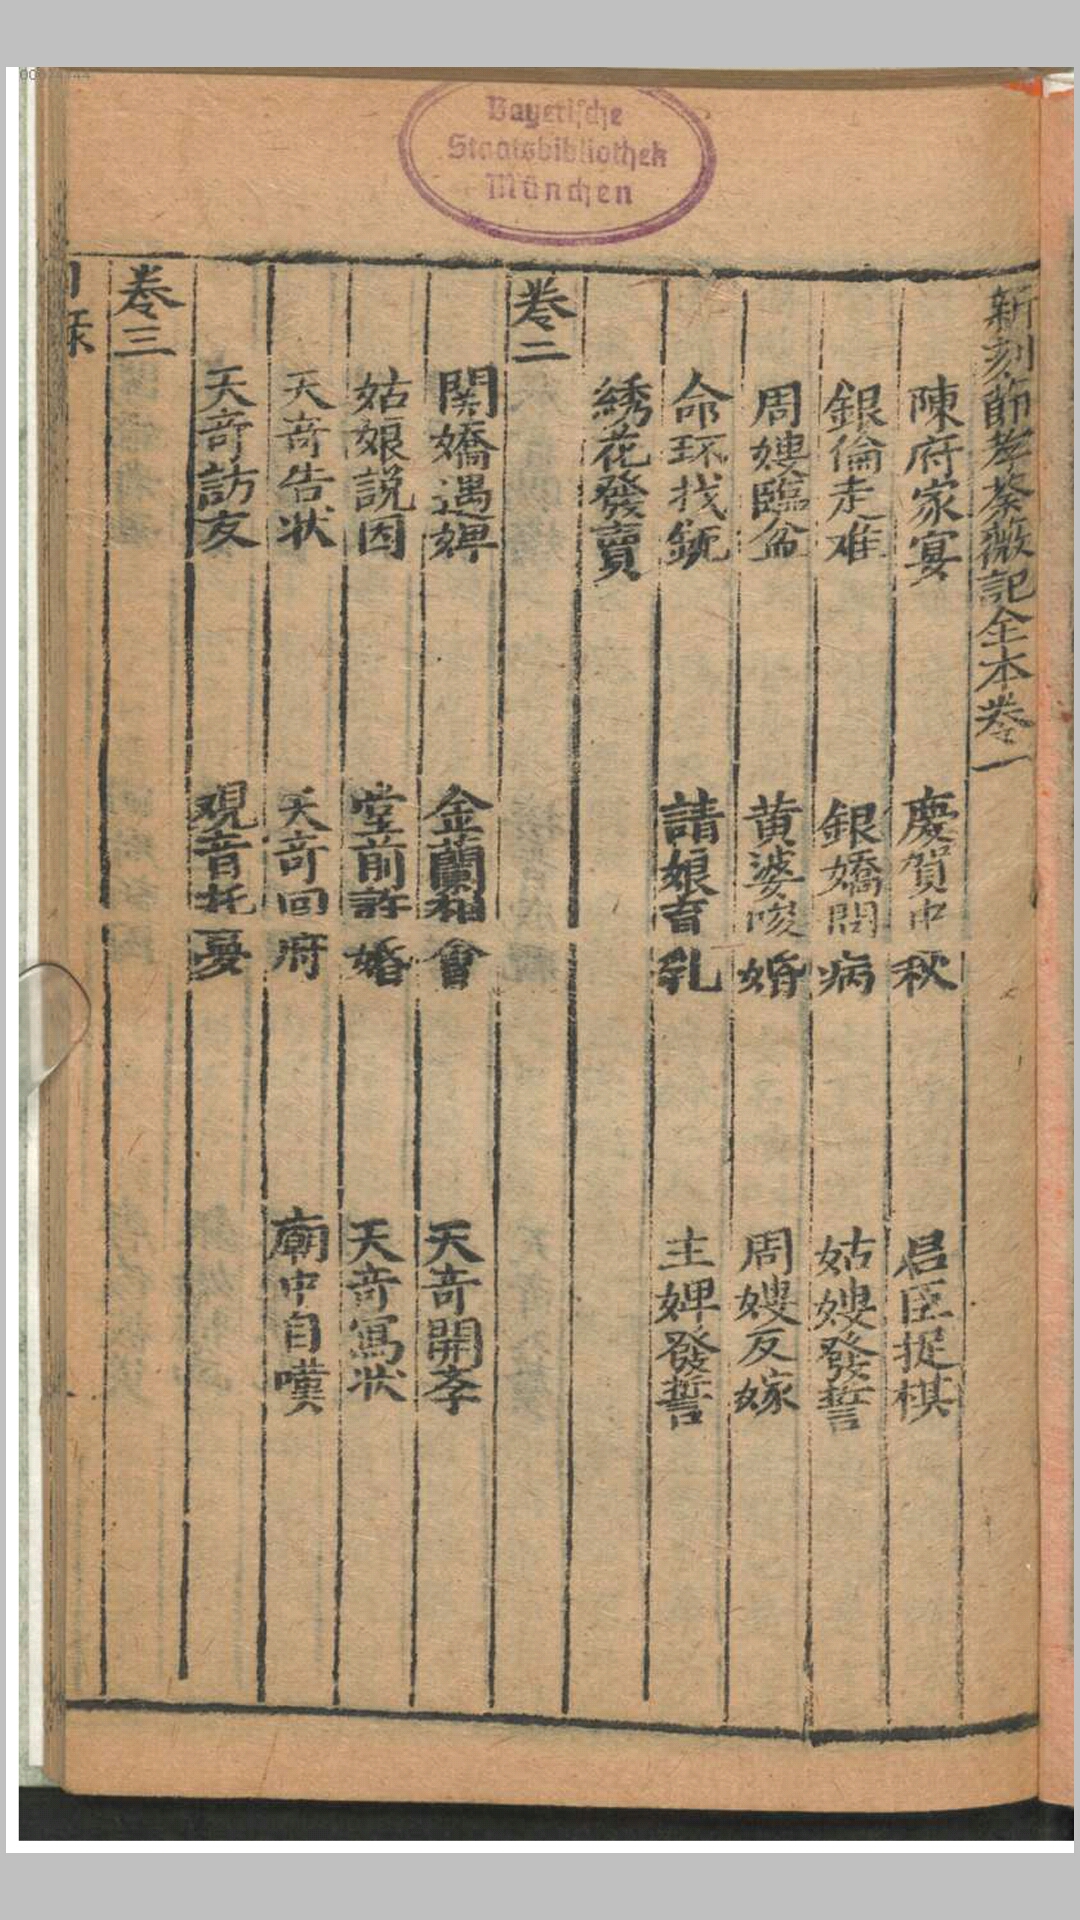 Bayerische
Staatsbibliothek
München
新刻節孝荼薇記全本卷一
陳府家宴 慶賀中秋 君臣捉棋
銀倫走难 銀嬌問病 姑嫂發誓
周嫂臨盆 黄婆唆婚 周嫂反嫁
命环找 請娘育乳 主婢發誓
綉花發賣
卷二
関嬌遇婢 金蘭相會 天竒開孝
姑娘説因 堂前許婚 天竒寫状
天竒告状 天竒回府 廟中自嘆
天竒訪友 观音托憂
卷三
目录